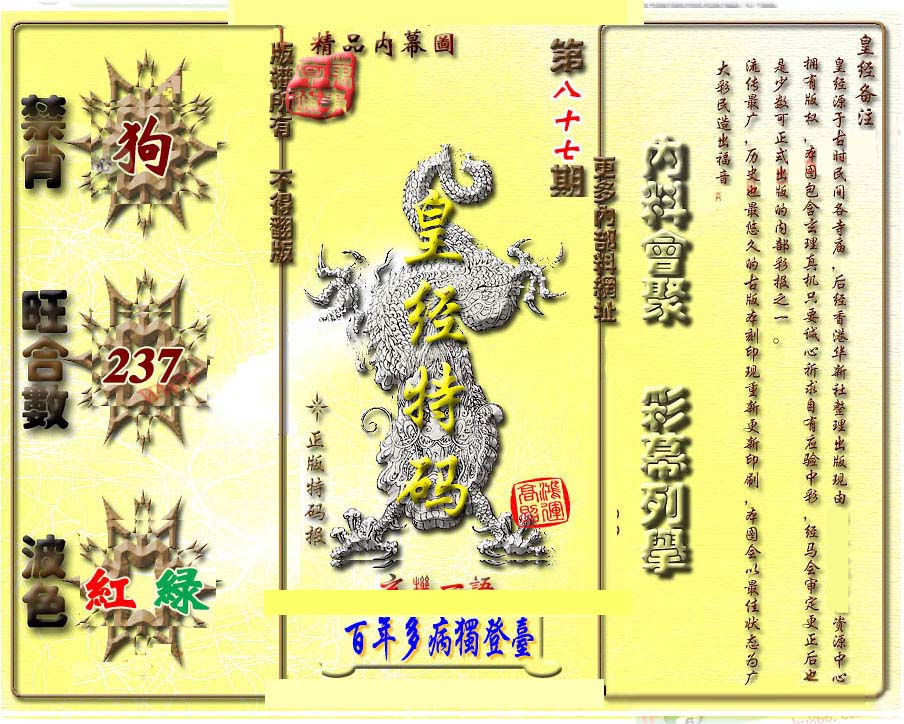 皇经备注
皇经源于古时民间各寺庙，后经香港华新社整理出版现由
资源中心
拥有版权，本图包含玄理真机只要诚心祈求自有应验中彩，经马会审定更正后也
是少数可正式出版的内部彩报之一。
流传最广，历史也最悠久的古版本刻印现重新更新印刷，本图会以最佳状态为广
大彩民造出福音
内料會聚
彩幕列舉
更多內部料網址
第八十七期
精品内幕圖
版權所有 不得翻版
皇经特码
正版特码报
鴻運高照
玄機一語
百年多病獨登臺
禁肖
狗
旺合數
237
波色
紅 綠